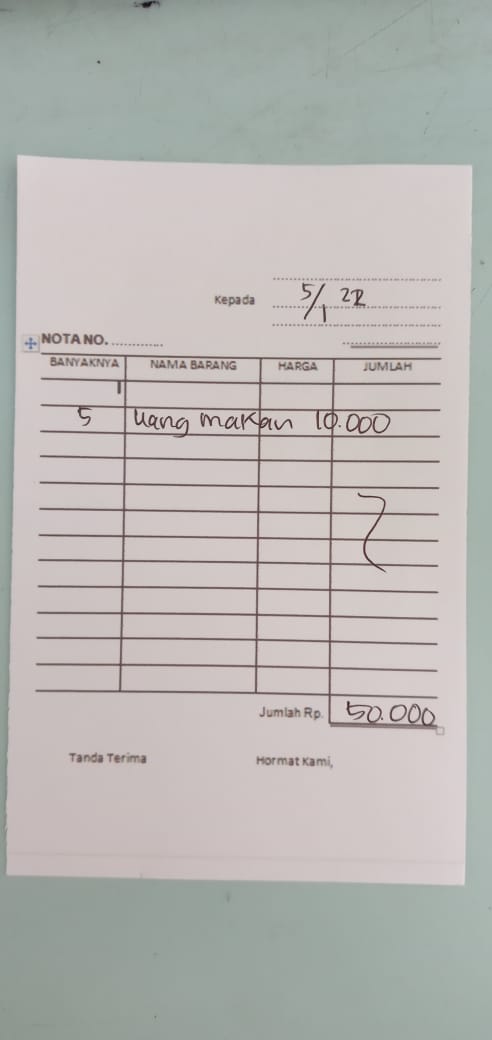 Kepada 5/1 22
NOTA NO. ............
BANYAKNYA NAMA BARANG HARGA JUMLAH
5 Uang makan 10.000
Jumlah Rp. 50.000
Tanda Terima Hormat Kami,